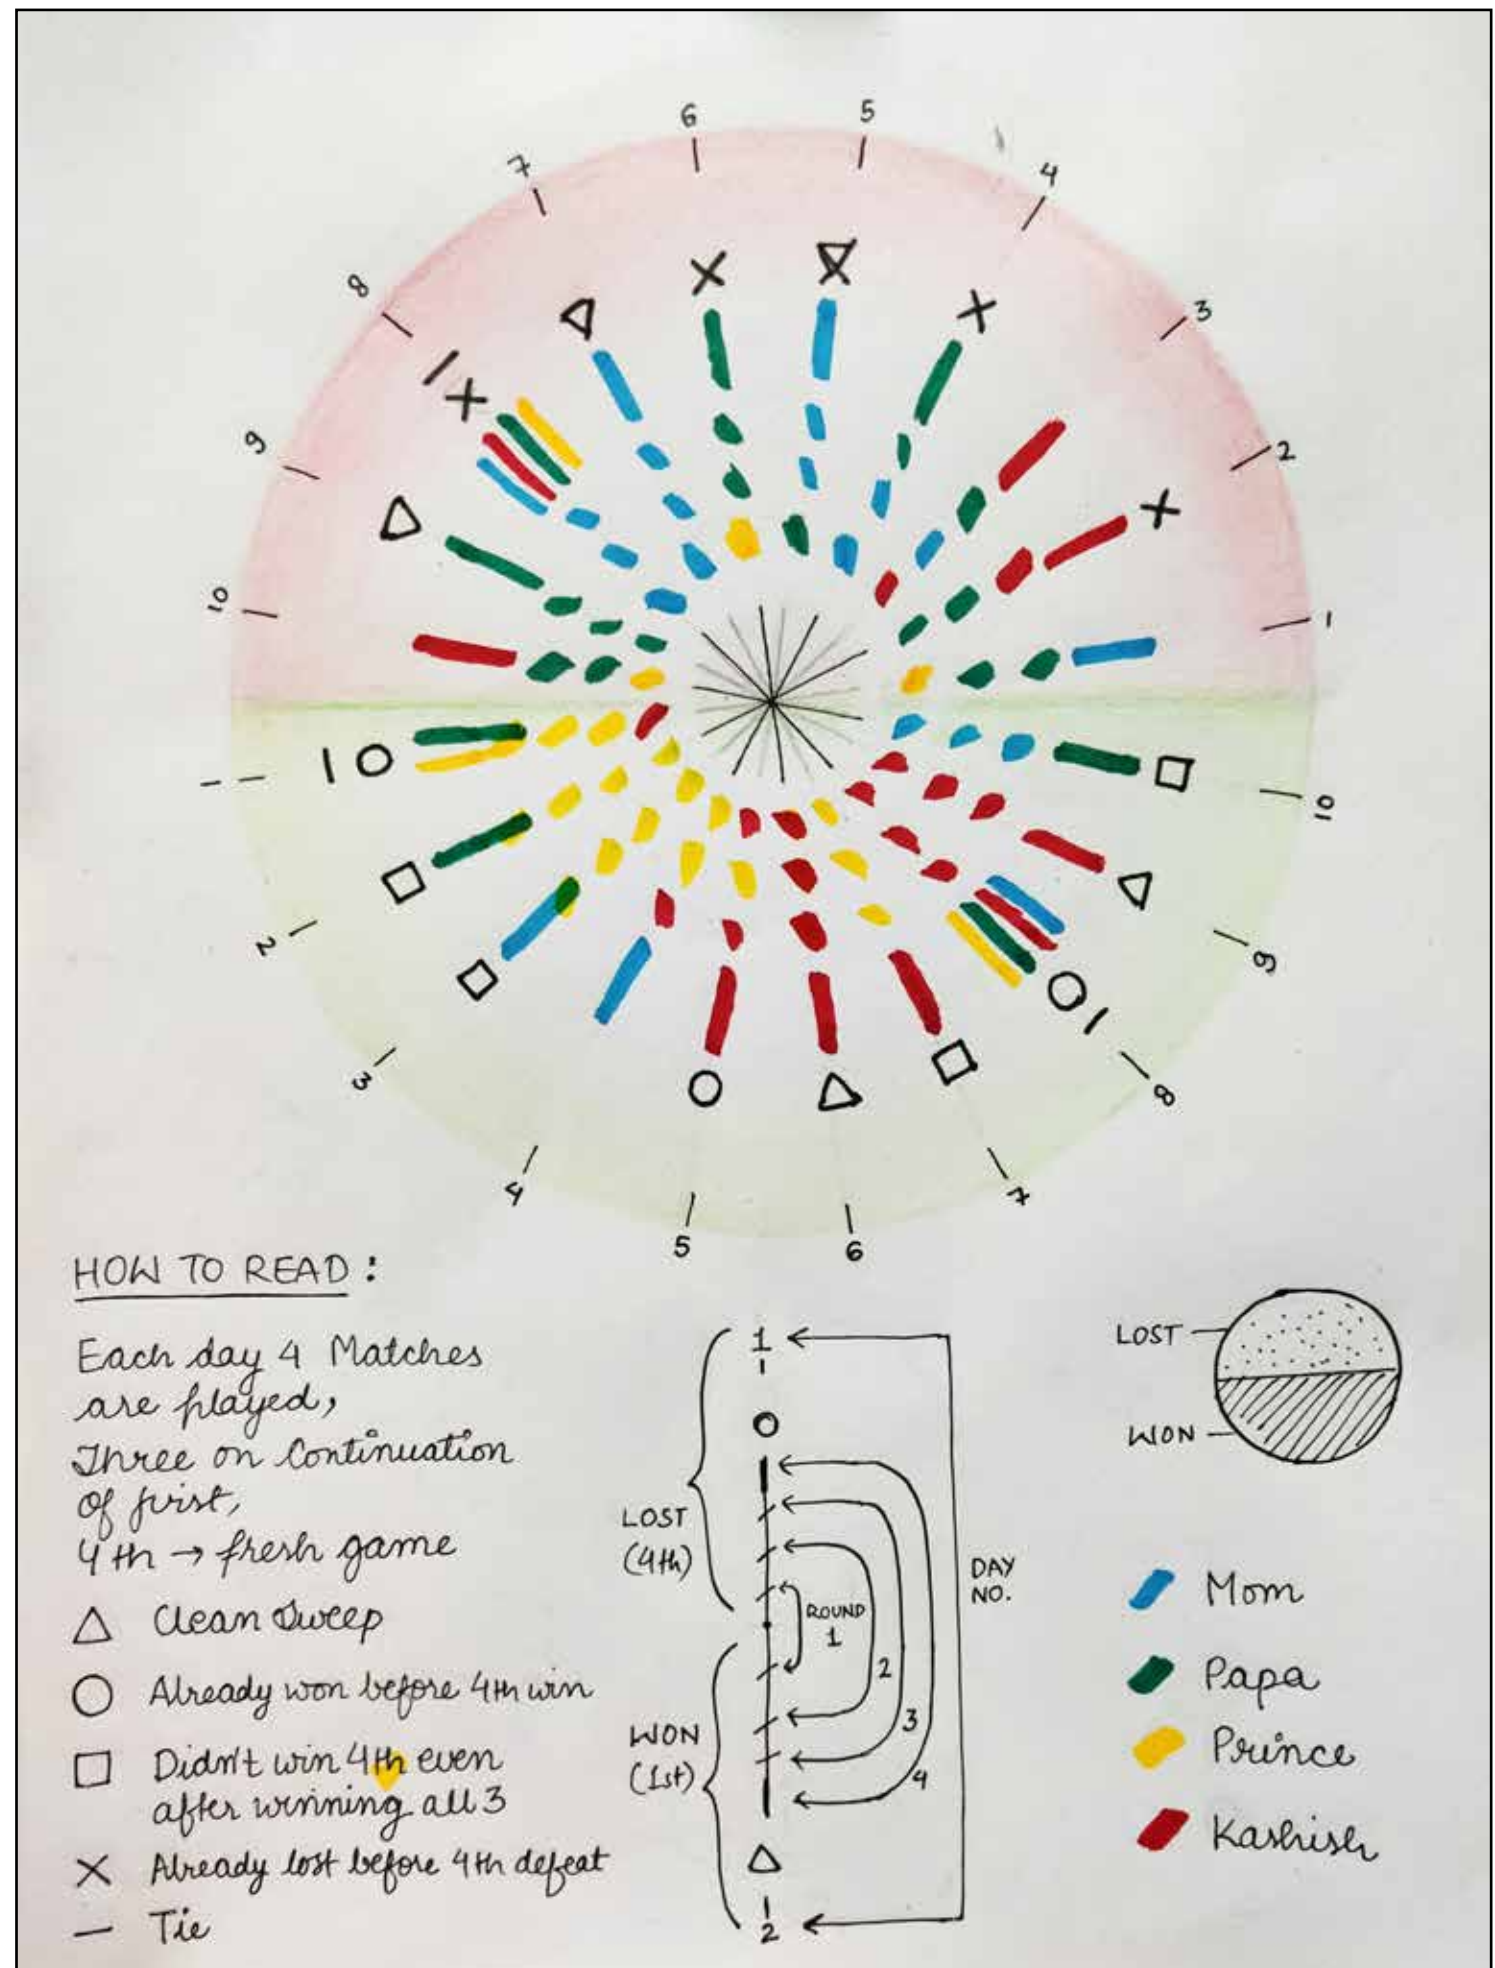 6
5
7
4
8
3
9
2
10
1
1
10
2
9
3
8
4
7
5
6
HOW TO READ :
Each day 4 Matches
are played,
Three on Continuation
of first,
4th → fresh game
△ Clean Sweep
○ Already won before 4th win
□ Didn't win 4th even
after winning all 3
× Already lost before 4th defeat
— Tie
1
LOST
(4th)
ROUND
1
2
3
4
WON
(1st)
2
DAY
NO.
LOST
WON
Mom
Papa
Prince
Kashish